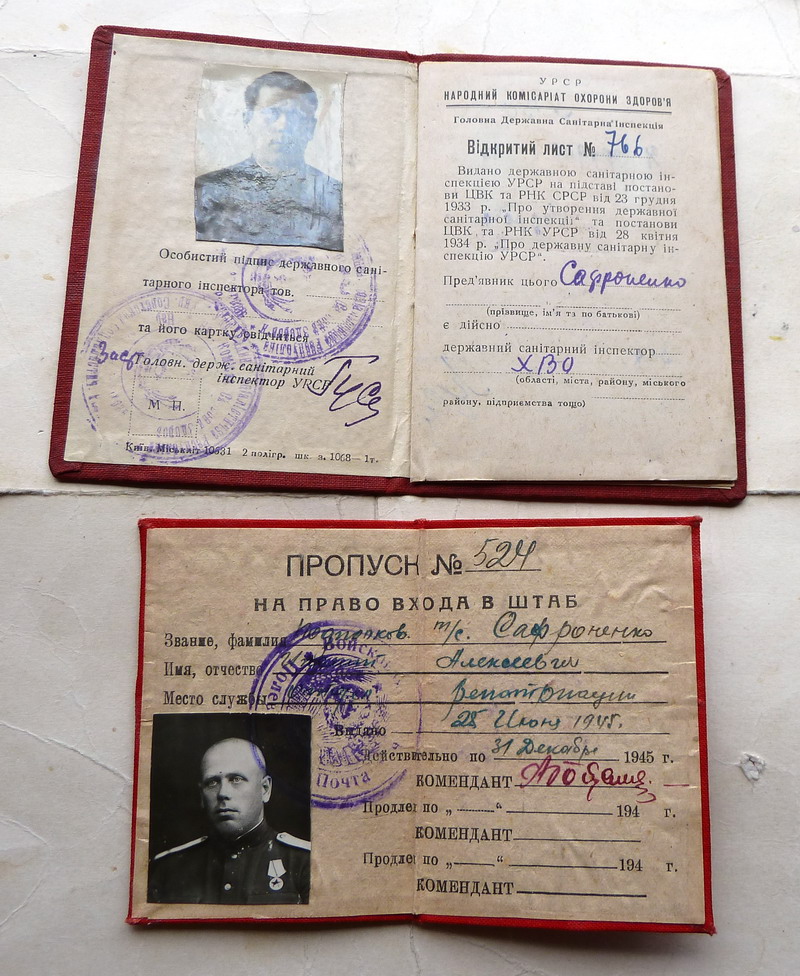 Особистий підпис державного сані-
тарного інспектора тов.
та його картку свідчиться
Заст. Головн. держ. санітарний
інспектор УРСР
М П.
Київ. Міськліт 10531 2 полігр. шк. з. 1068—1т.
УРСР
НАРОДНИЙ КОМІСАРІАТ ОХОРОНИ ЗДОРОВ'Я
Головна Державна Санітарна Інспекція
Відкритий лист № 766
Видано державною санітарною ін-
спекцією УРСР на підставі постано-
ви ЦВК та РНК СРСР від 23 грудня
1933 р. „Про утворення державної
санітарної інспекції" та постанови
ЦВК та РНК УРСР від 28 квітня
1934 р. „Про державну санітарну ін-
спекцію УРСР".
Пред'явник цього Сафроненко
(прізвище, ім'я та по батькові)
є дійсно
державний санітарний інспектор
ХВО
(області, міста, району, міського
району, підприємства тощо)
ПРОПУСК № 524
НА ПРАВО ВХОДА В ШТАБ
Звание, фамилия т/с. Сафроненко
Имя, отчество Алексеевич
Место службы репатриации
Выдано 25 Июня 1945г.
Действительно по 31 Декабря 1945 г.
КОМЕНДАНТ
Продлен по „ “ 194 г.
КОМЕНДАНТ
Продлен по „ “ 194 г.
КОМЕНДАНТ
Почта